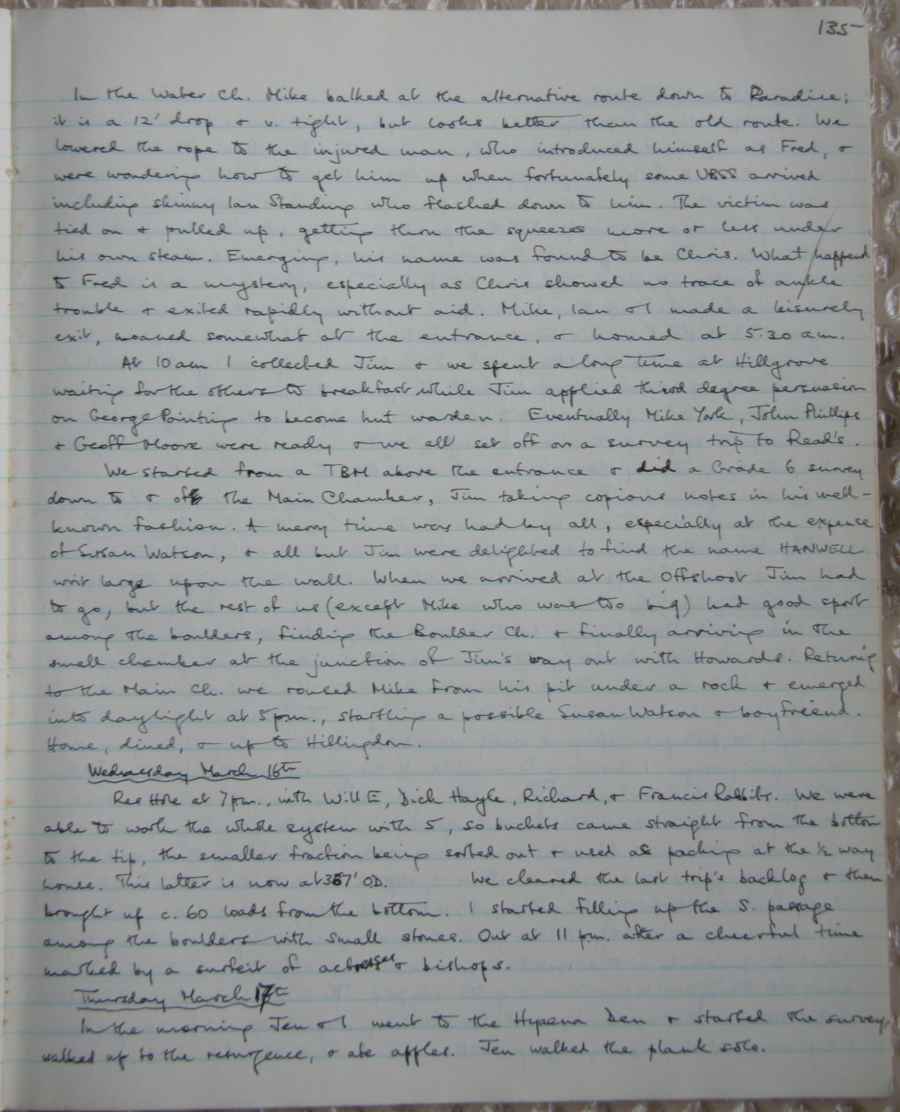 135
In the Water Ch. Mike balked at the alternative route down to Paradise;
it is a 12' drop & v. tight, but looks better than the old route. We
lowered the rope to the injured man, who introduced himself as Fred, &
were wondering how to get him up when fortunately some UBSS arrived
including skinny Ian Standing who flashed down to him. The victim was
tied on & pulled up, getting thru the squeezes more or less under
his own steam. Emerging, his name was found to be Chris. What happened
to Fred is a mystery, especially as Chris showed no trace of ankle
trouble & exited rapidly without aid. Mike, Ian & I made a leisurely
exit, moaned somewhat at the entrance, & homed at 5.30 am.
At 10 am I collected Jim & we spent a long time at Hillgrove
waiting for the others to breakfast while Jim applied third degree persuasion
on George Pointing to become hut warden. Eventually Mike York, John Phillips
& Geoff Moore were ready & we all set off on a survey trip to Read's.
We started from a TBM above the entrance & did a Grade 6 survey
down to & off the Main Chamber, Jim taking copious notes in his well-
known fashion. A merry time was had by all, especially at the expence
of Susan Watson, & all but Jim were delighted to find the name HANWELL
writ large upon the wall. When we arrived at the Offshoot Jim had
to go, but the rest of us (except Mike who was too big) had good sport
among the boulders, finding the Boulder Ch. & finally arriving in the
small chamber at the junction of Jim's way out with Howards. Returning
to the Main Ch. we roused Mike from his pit under a rock & emerged
into daylight at 5 pm., startling a possible Susan Watson & boyfriend.
Home, dined, & up to Hillingdon.
Wednesday March 16th
Ree Hole at 7 pm., with Will E, Dick Hayle, Richard, & Francis Rabbits. We were
able to work the whole system with 5, so buckets came straight from the bottom
to the tip, the smaller fraction being sorted out & used as packing at the ½ way
house. This latter is now at 367' OD. We cleared the last trip's backlog & then
brought up c. 60 loads from the bottom. I started filling up the S. passage
among the boulders with small stones. Out at 11 pm. after a cheerful time
marked by a surfeit of actresses & bishops.
Thursday March 17th
In the morning Jen & I went to the Hyaena Den & started the survey,
walked up to the resurgence, & ate apples. Jen walked the plank solo.